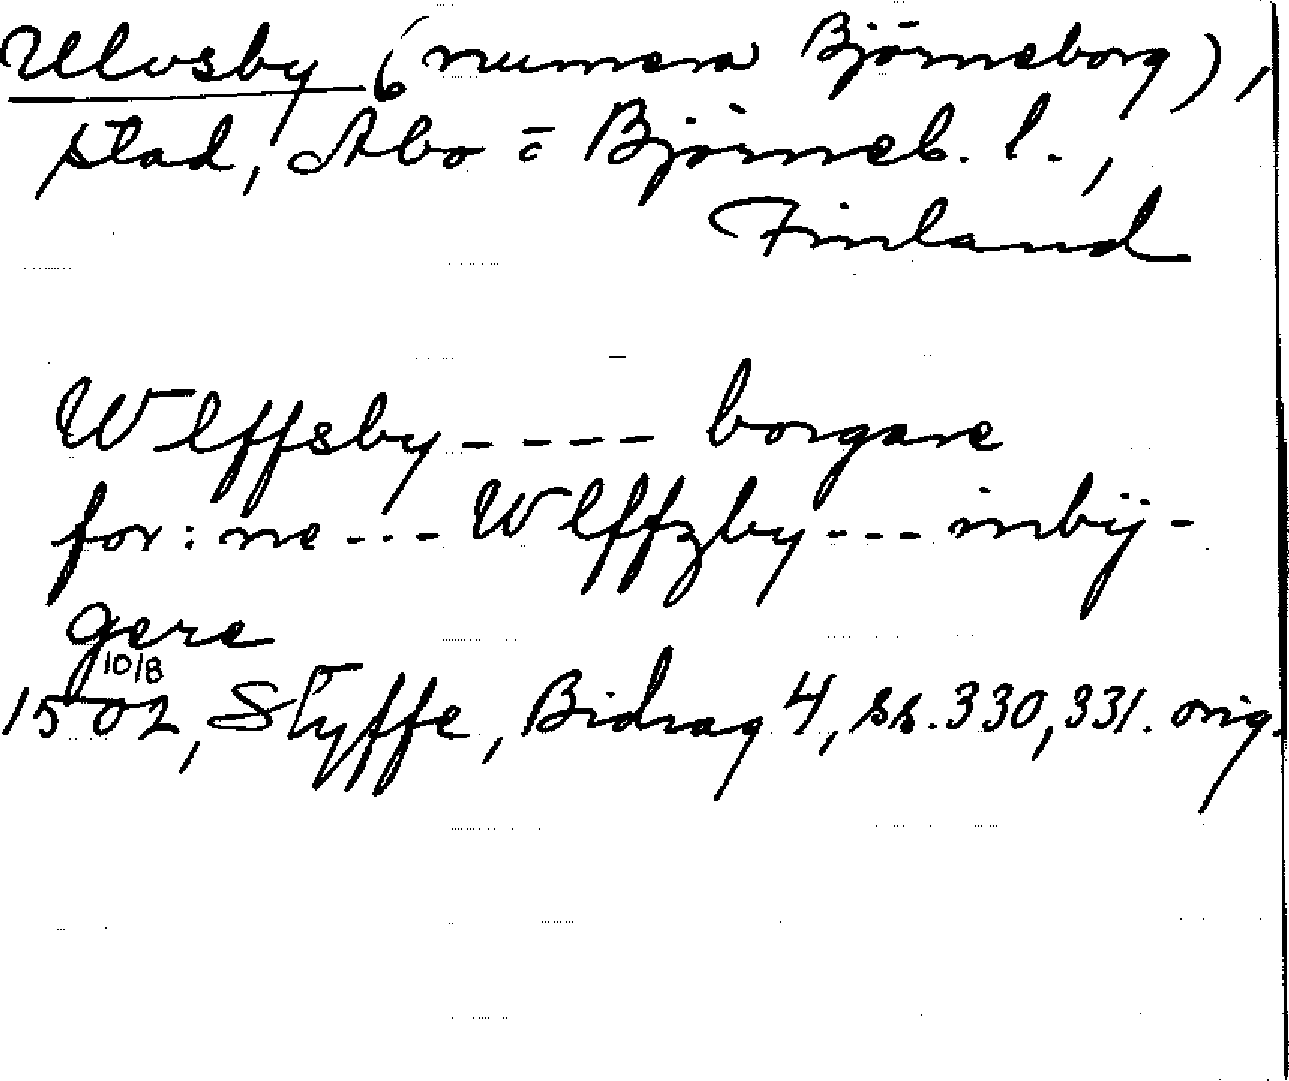 Ulvsby (numera Björneborg),
stad, Åbo = Björneb. l.,
Finland
Wlffsby ---- borgare
for: ne --- Wlffzby --- inbÿ-
gere
10/8
1502, Styffe, Bidrag 4, ss. 330, 331. orig.